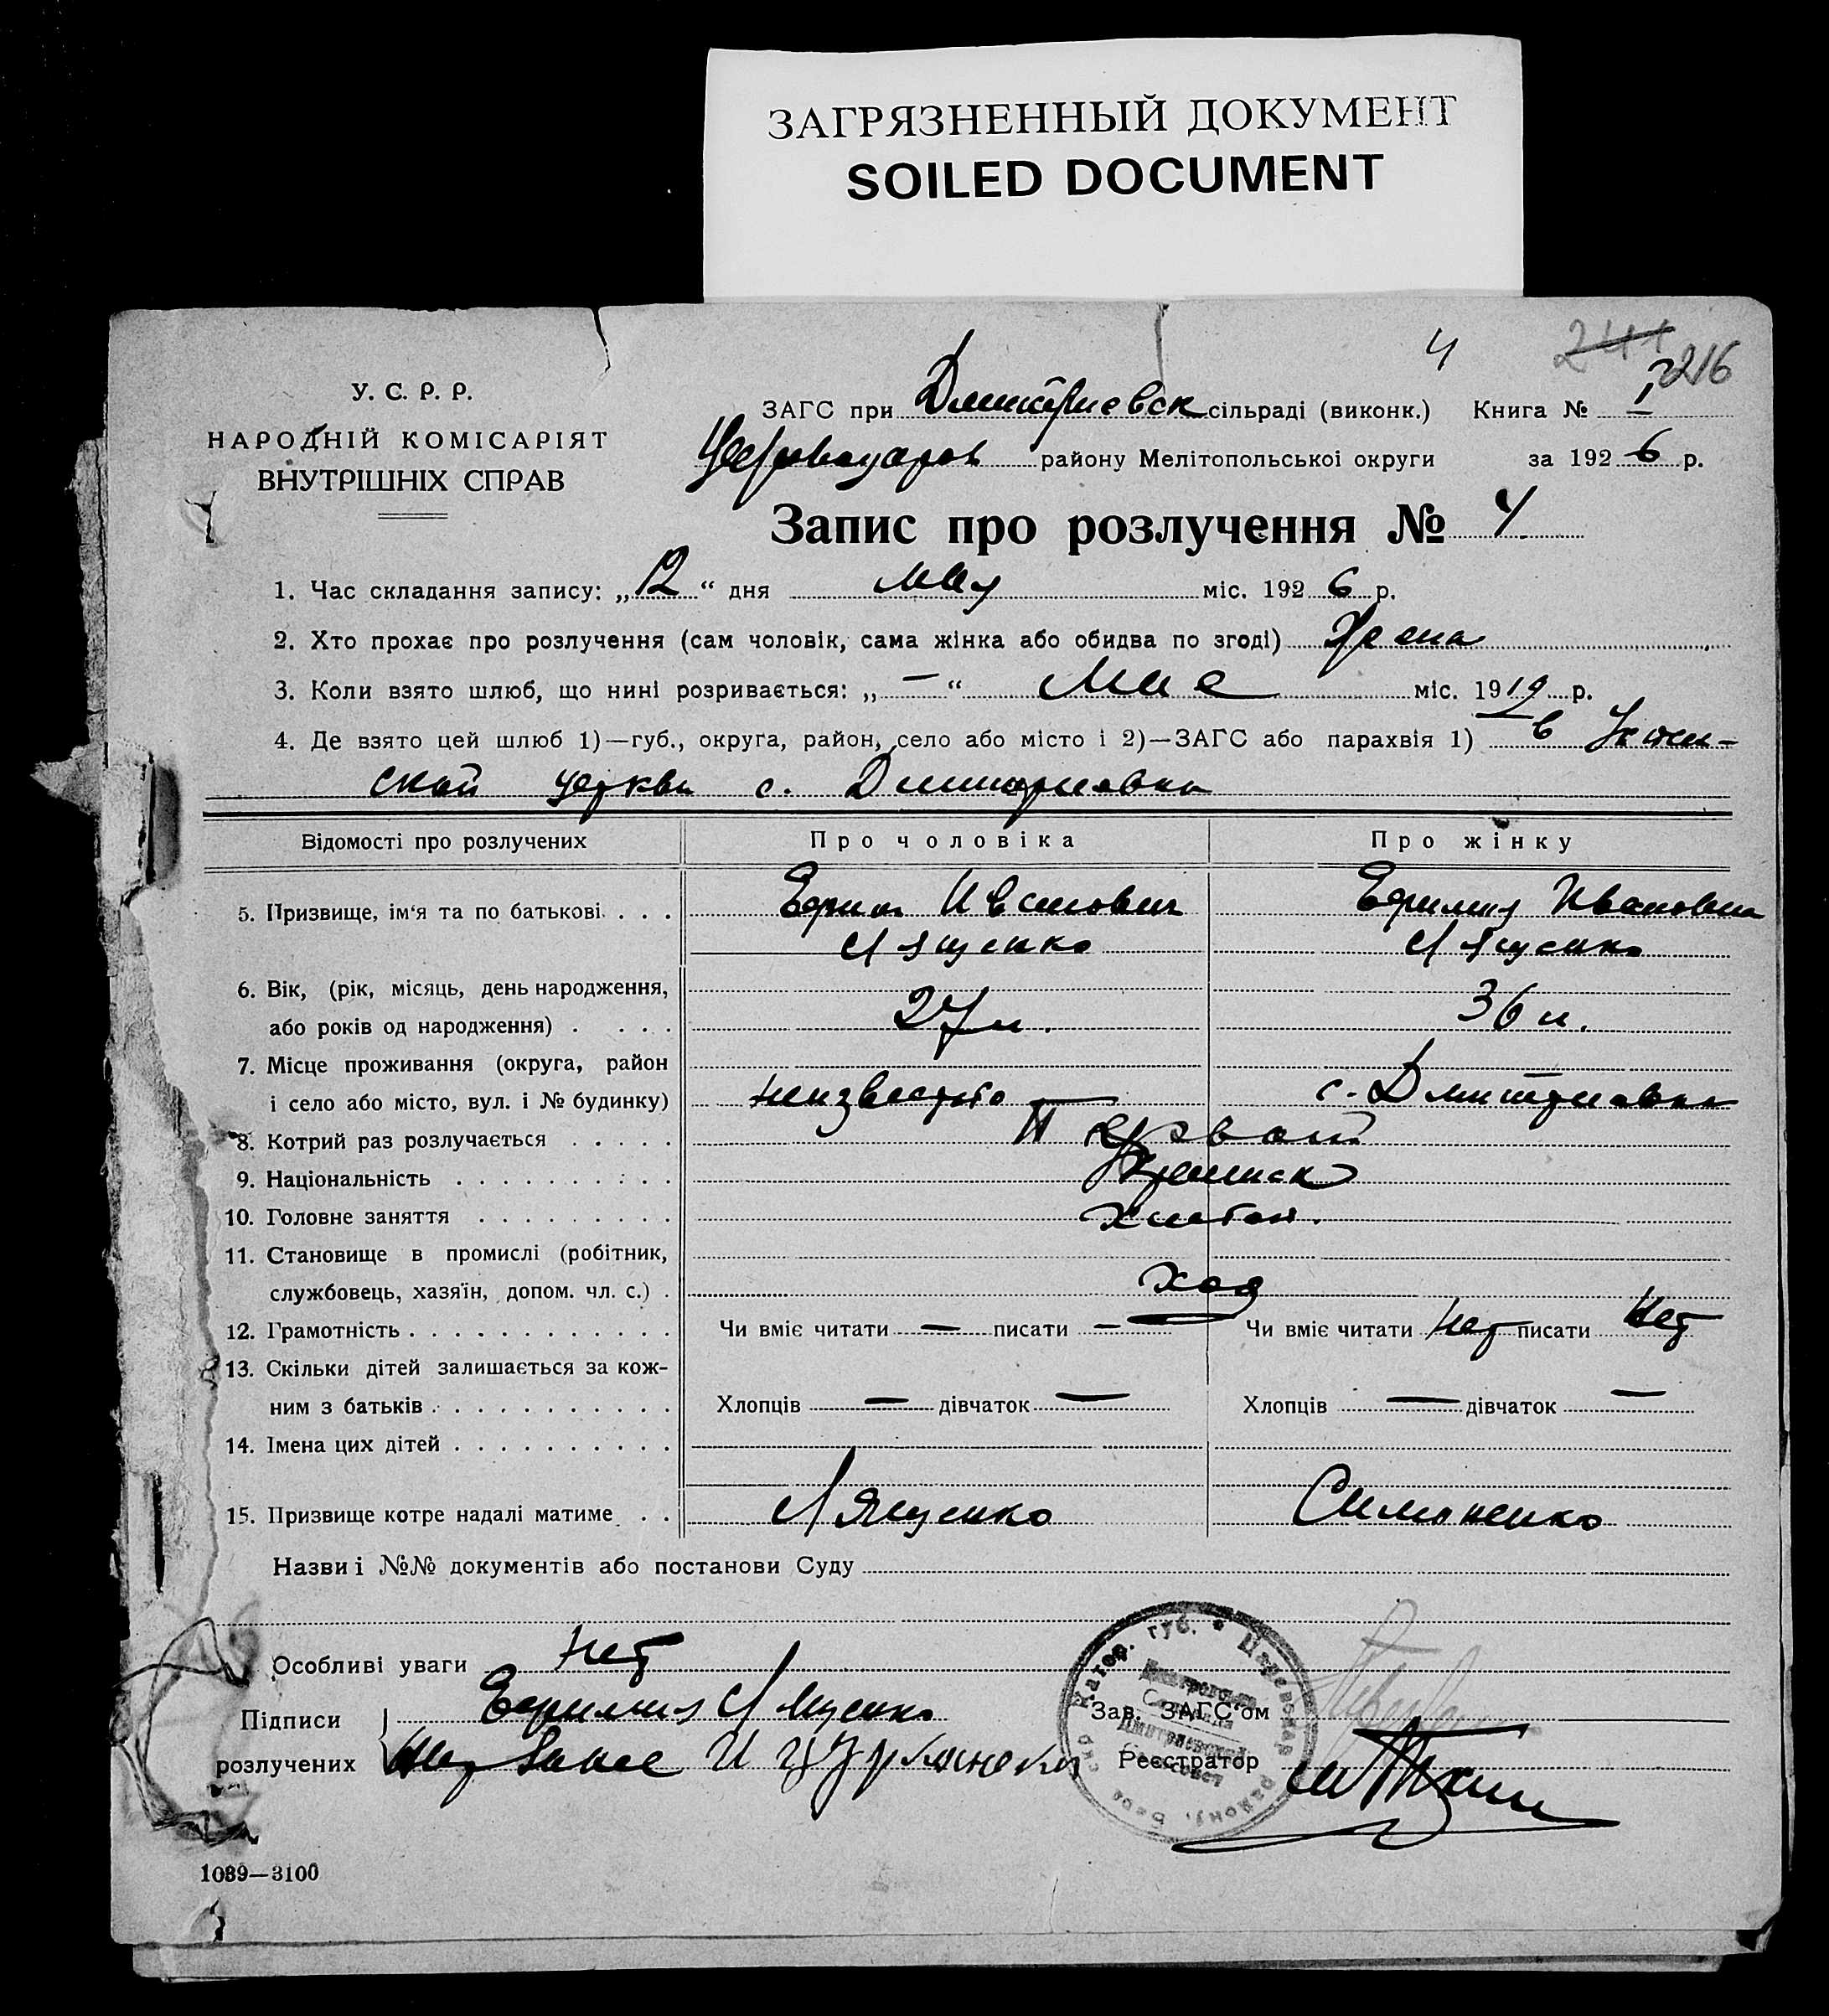 ЗАГРЯЗНЕННЫЙ ДОКУМЕНТ
SOILED DOCUMENT
4
241 216
У. С. Р. Р.
НАРОДНІЙ КОМІСАРІЯТ
ВНУТРІШНІХ СПРАВ
ЗАГС при Дмитриевск сільраді (виконк.) Книга № I
району Мелітопольської округи за 1926 р.
Запис про розлучення № 4.
1. Час складання запису: „12“ дня мая міс. 1926 р.
2. Хто прохає про розлучення (сам чоловік, сама жінка або обидва по згоді) Жена
3. Коли взято шлюб, що нині розривається: „—“ Мае міс. 1919 р.
4. Де взято цей шлюб 1)—губ., округа, район, село або місто і 2)—ЗАГС або парахвія 1) в
ской церкви с. Дмитриевка
Відомості про розлучених Про чоловіка Про жінку
5. Призвище, ім'я та по батькові . . . Ефим Иванович Ефимия Ивановна
Лященко Лященко
6. Вік, (рік, місяць, день народження,
або років од народження) . . . . 27 л. 36 л.
7. Місце проживання (округа, район
і село або місто, вул. і № будинку) неизвестно с. Дмитриевка
8. Котрий раз розлучається . . . . . Первый
9. Національність . . . . . . . . . . Украинск
10. Головне заняття . . . . . . . . . Хлебоп.
11. Становище в промислі (робітник,
службовець, хазяїн, допом. чл. с.) . Хоз
12. Грамотність . . . . . . . . . . . . Чи вміє читати — писати — Чи вміє читати Нет писати Нет
13. Скільки дітей залишається за кож-
ним з батьків . . . . . . . . . . . Хлопців — дівчаток — Хлопців — дівчаток —
14. Імена цих дітей . . . . . . . . . .
15. Призвище котре надалі матиме . . Лященко Симоненко
Назви і №№ документів або постанови Суду
Особливі уваги Нет
Підписи Ефимия Лященко Зав. ЗАГС'ом
розлучених Реєстратор
1039—3100